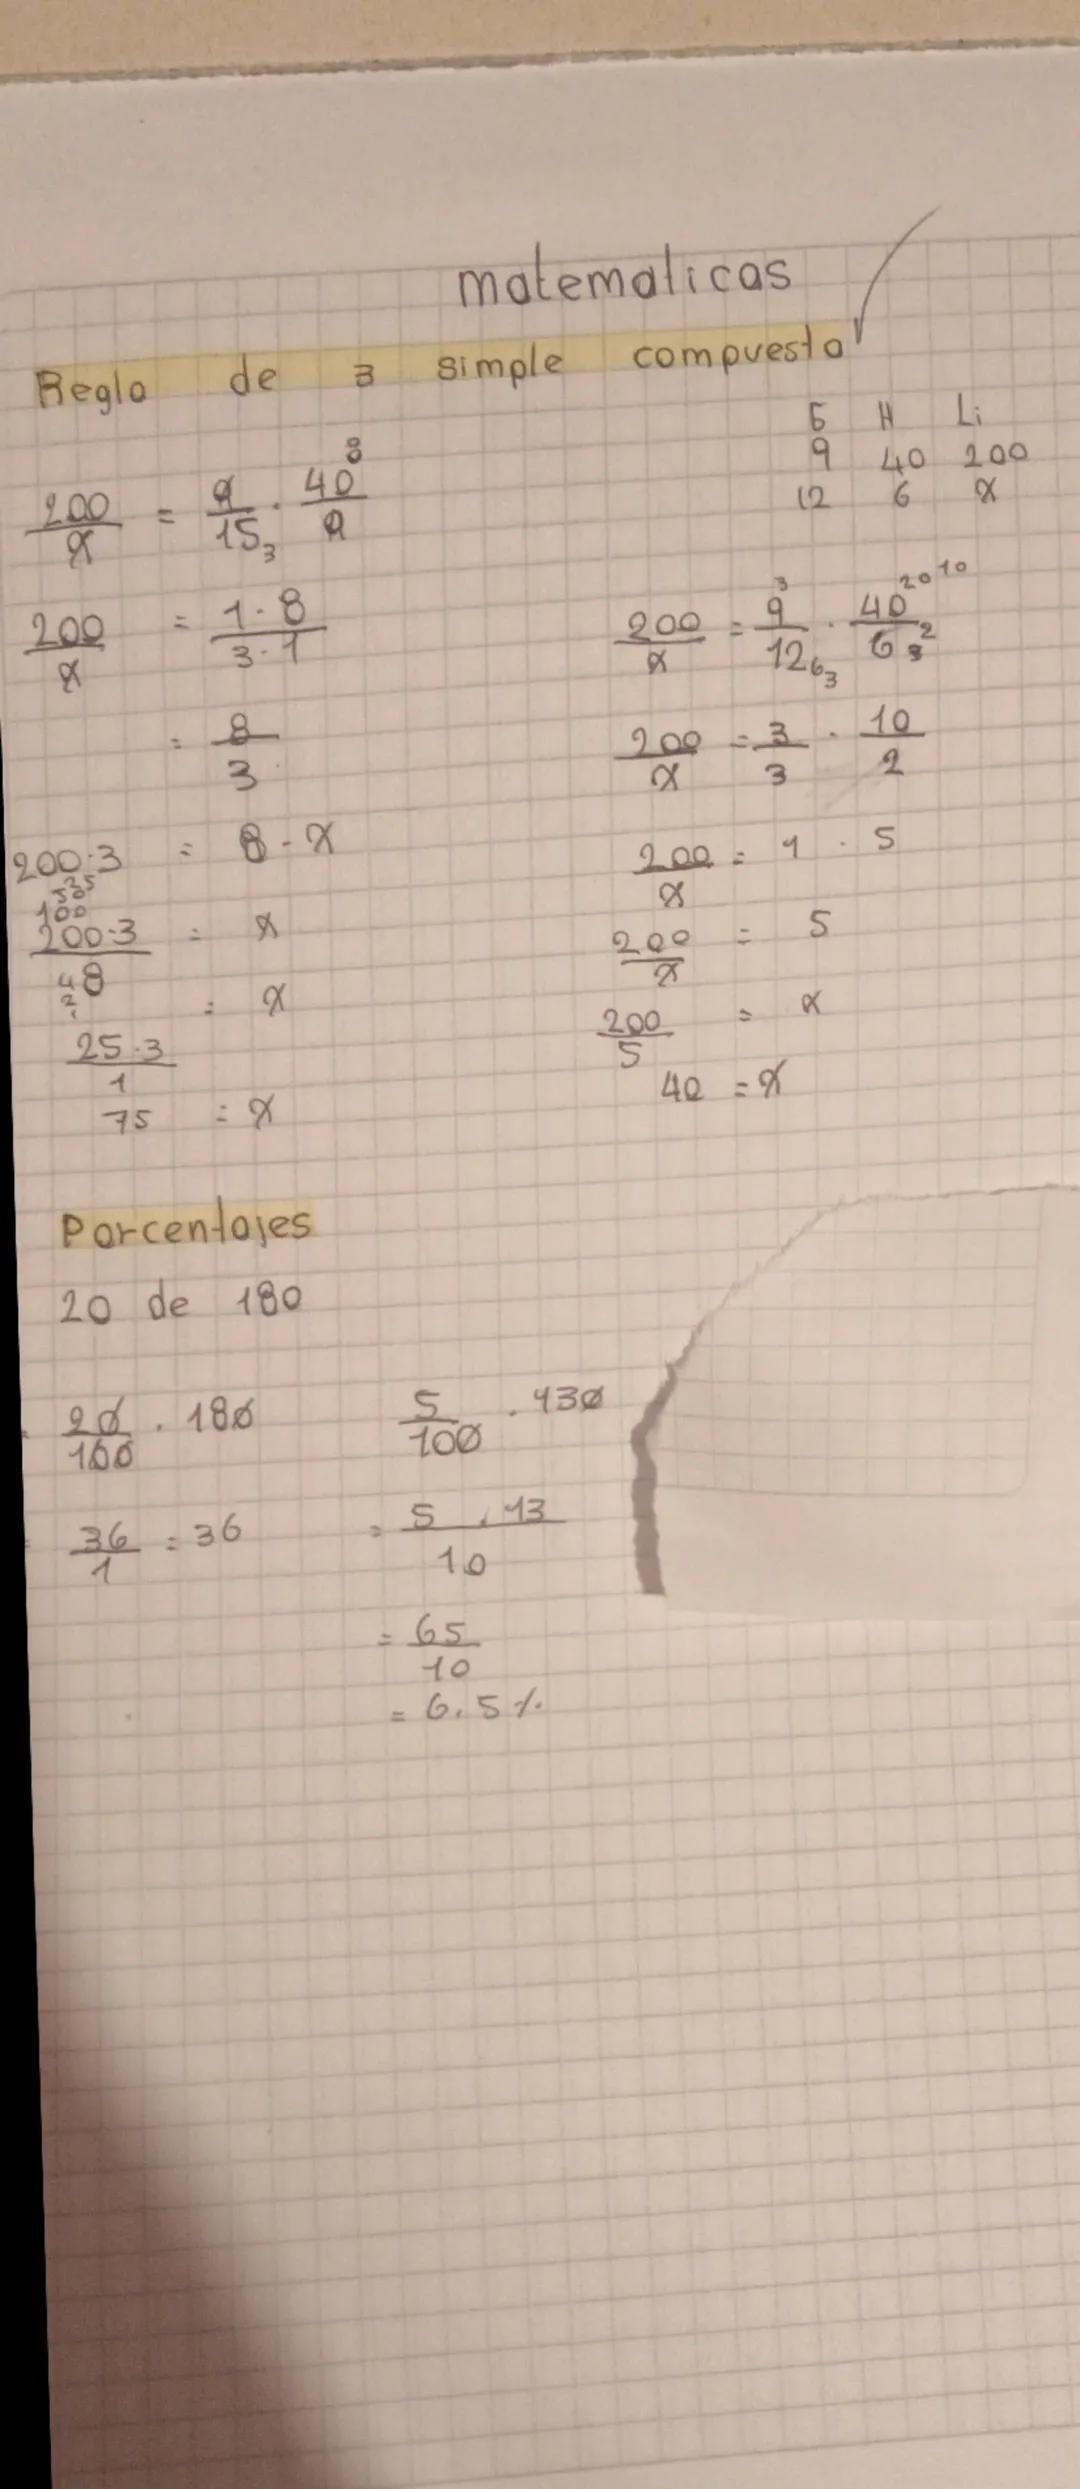 matematicas
Regla de 3 simple compuesta
200/x = 9/15 3 · 40 8/9
200/x = 1·8/3·1
= 8/3
200·3 = 8·x
200·3/8 = x
25·3/1 = x
75 = x
G H Li
9 40 200
12 6 x
200/x = 9 3/12 6 3 · 40 20 10/6 3 2
200/x = 3/3 · 10/2
200/x = 1 · 5
200/x = 5
200/5 = x
40 = x
Porcentajes
20 de 180
20/100 · 180
36/1 = 36
5/100 · 130
= 5 · 13/10
= 65/10
= 6.5%